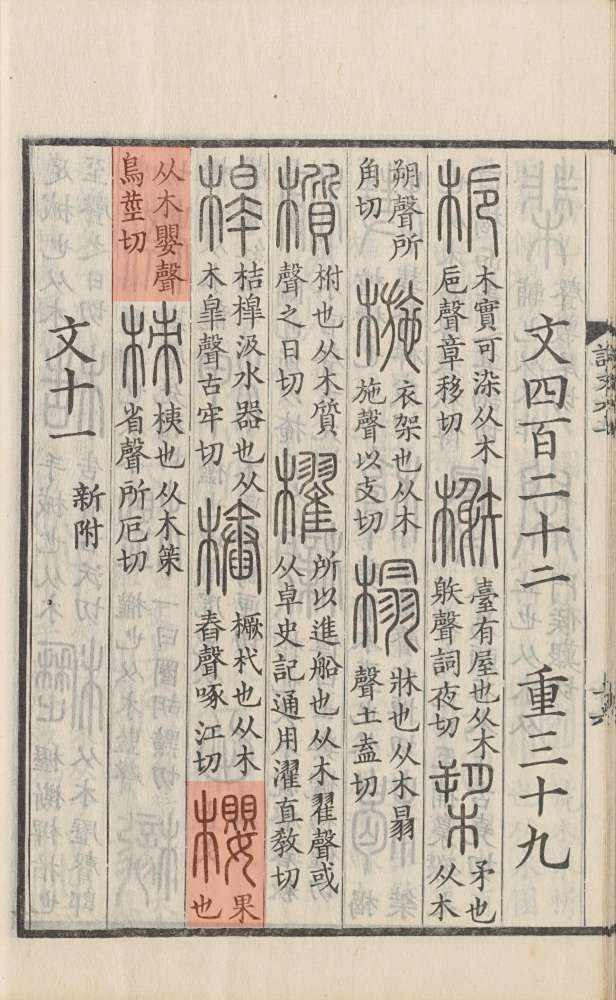 文四百二十二　重三十九
梔　木實可染从木巵聲章移切　榭　臺有屋也从木䠶聲詞夜切　槊　矛也从木
朔聲所角切　椸　衣架也从木施聲以支切　榻　牀也从木𦐇聲土盍切
櫍　柎也从木質聲之日切　櫂　所以進船也从木翟聲或从卓史記通用濯直敎切
橰　桔橰汲水器也从木皐聲古牢切　樁　橛杙也从木舂聲啄江切　櫻　果也
从木嬰聲烏莖切　栜　桋也从木策省聲所厄切
文十一　新附